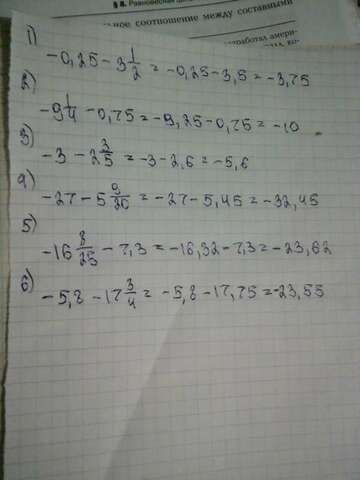 § 8. Равновесная
ьное соотношение между составными
зработал амери-
1)
-0,25 - 3 1/2 = -0,25 - 3,5 = -3,75
2)
-9 1/4 - 0,75 = -9,25 - 0,75 = -10
3)
-3 - 2 3/5 = -3 - 2,6 = -5,6
4)
-27 - 5 9/20 = -27 - 5,45 = -32,45
5)
-16 8/25 - 7,3 = -16,32 - 7,3 = -23,62
6)
-5,8 - 17 3/4 = -5,8 - 17,75 = -23,55